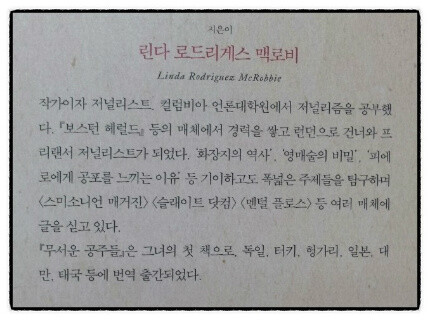 지은이
린다 로드리게스 맥로비
Linda Rodriguez McRobbie
작가이자 저널리스트. 컬럼비아 언론대학원에서 저널리즘을 공부했
다. 『보스턴 헤럴드』 등의 매체에서 경력을 쌓고 런던으로 건너와 프
리랜서 저널리스트가 되었다. ‘화장지의 역사’, ‘영매술의 비밀’, ‘피에
로에게 공포를 느끼는 이유’ 등 기이하고도 폭넓은 주제들을 탐구하며
〈스미소니언 매거진〉 〈슬레이트 닷컴〉 〈멘털 플로스〉 등 여러 매체에
글을 싣고 있다.
『무서운 공주들』은 그녀의 첫 책으로, 독일, 터키, 헝가리, 일본, 대
만, 태국 등에 번역 출간되었다.